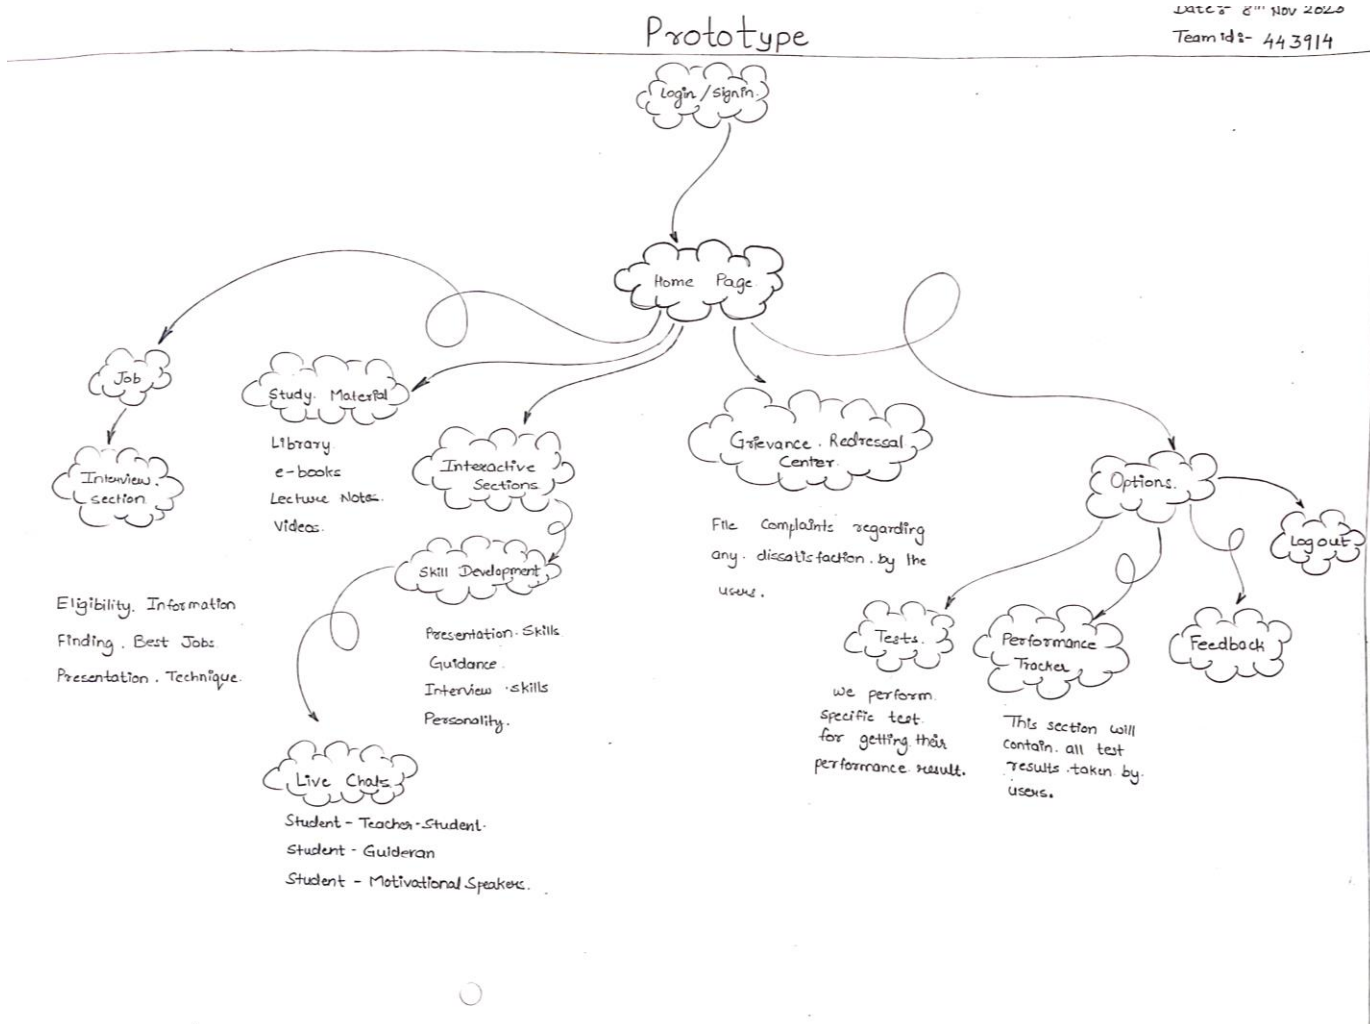 Prototype
Date:- 8th Nov 2020
Team id:- 443914
Login / Signin.
Home Page
Job
Interview.
section.
Eligibility. Information
Finding. Best Jobs
Presentation. Technique.
Study. Material
Library
e-books
Lecture Notes.
Videos.
Interactive
Sections
Skill Development
Presentation. Skills
Guidance.
Interview. skills
Personality.
Live Chats
Student - Teacher - Student.
Student - Guideran
Student - Motivational Speakers.
Grievance. Redressal
Center.
File Complaints regarding
any. dissatisfaction. by the
users.
Options.
Tests.
we perform.
specific test.
for getting their
performance result.
Performance
Tracker
This section will
contain. all test
results. taken by.
users.
Feedback
Logout